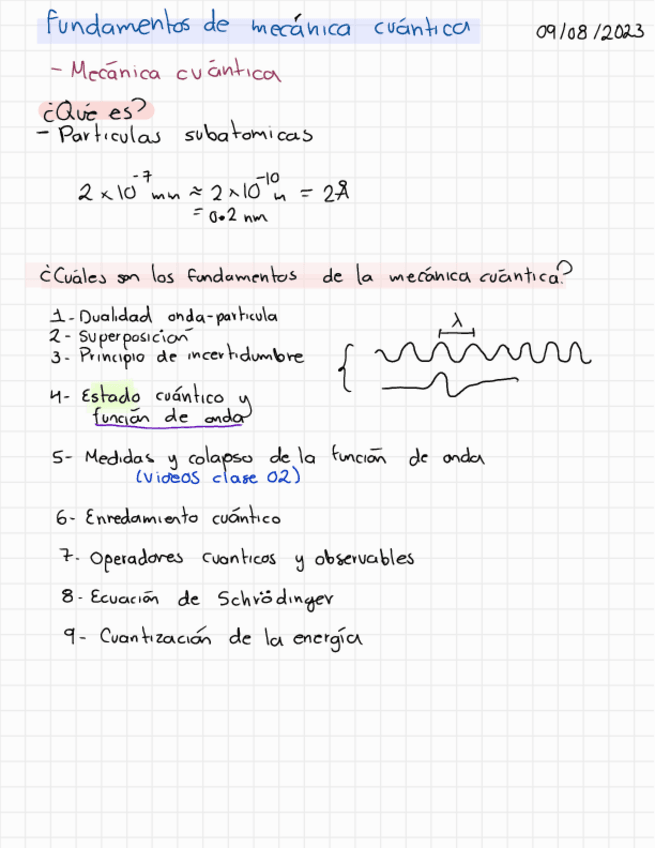 Fundamentos de mecánica cuántica
09/08/2023
- Mecánica cuántica
¿Qué es?
- Particulas subatomicas
2 × 10^-7 mm ≈ 2 × 10^-10 m = 2Å
= 0.2 nm
¿Cuáles son los fundamentos de la mecánica cuántica?
1- Dualidad onda-particula
2- Superposición
3- Principio de incertidumbre
λ
4- Estado cuántico y
función de onda
5- Medidas y colapso de la función de onda
(videos clase 02)
6- Enredamiento cuántico
7- Operadores cuanticos y observables
8- Ecuación de Schrödinger
9- Cuantización de la energía